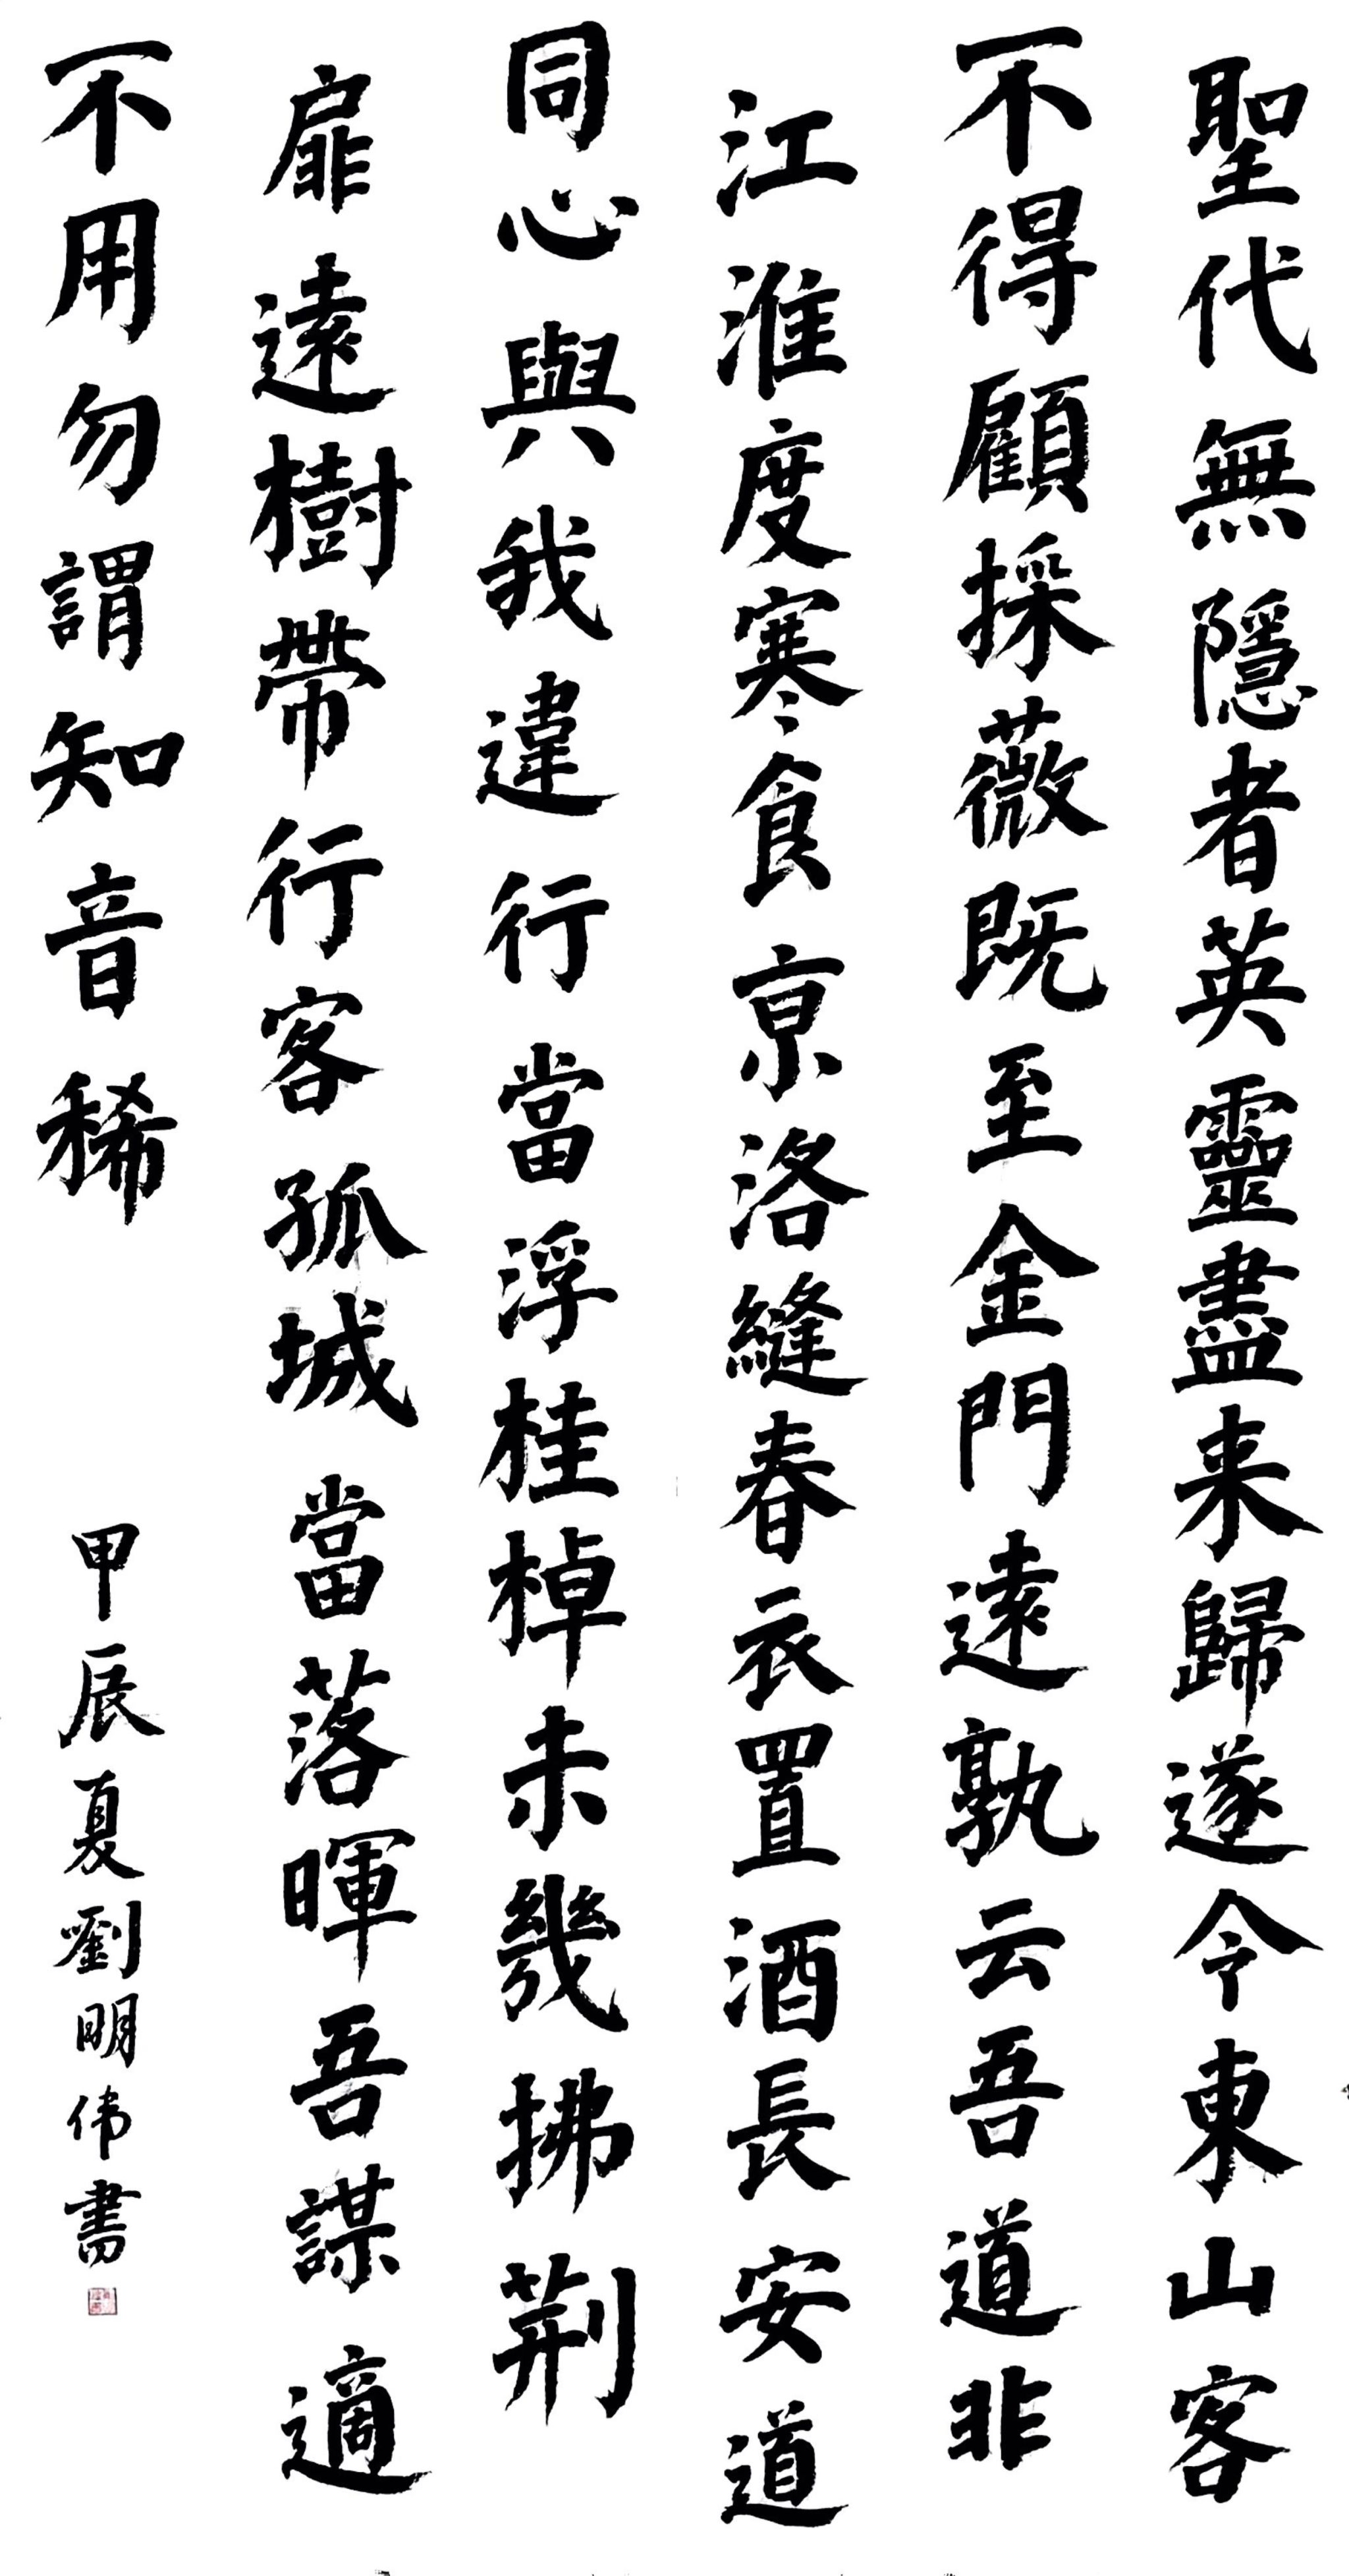 聖代無隱者英靈盡来歸遂令東山客
不得顧採薇既至金門遠孰云吾道非
江淮度寒食京洛縫春衣置酒長安道
同心與我違行當浮桂棹未幾拂荆
扉遠樹帶行客孤城當落暉吾謀適
不用勿謂知音稀
甲辰夏劉明偉書